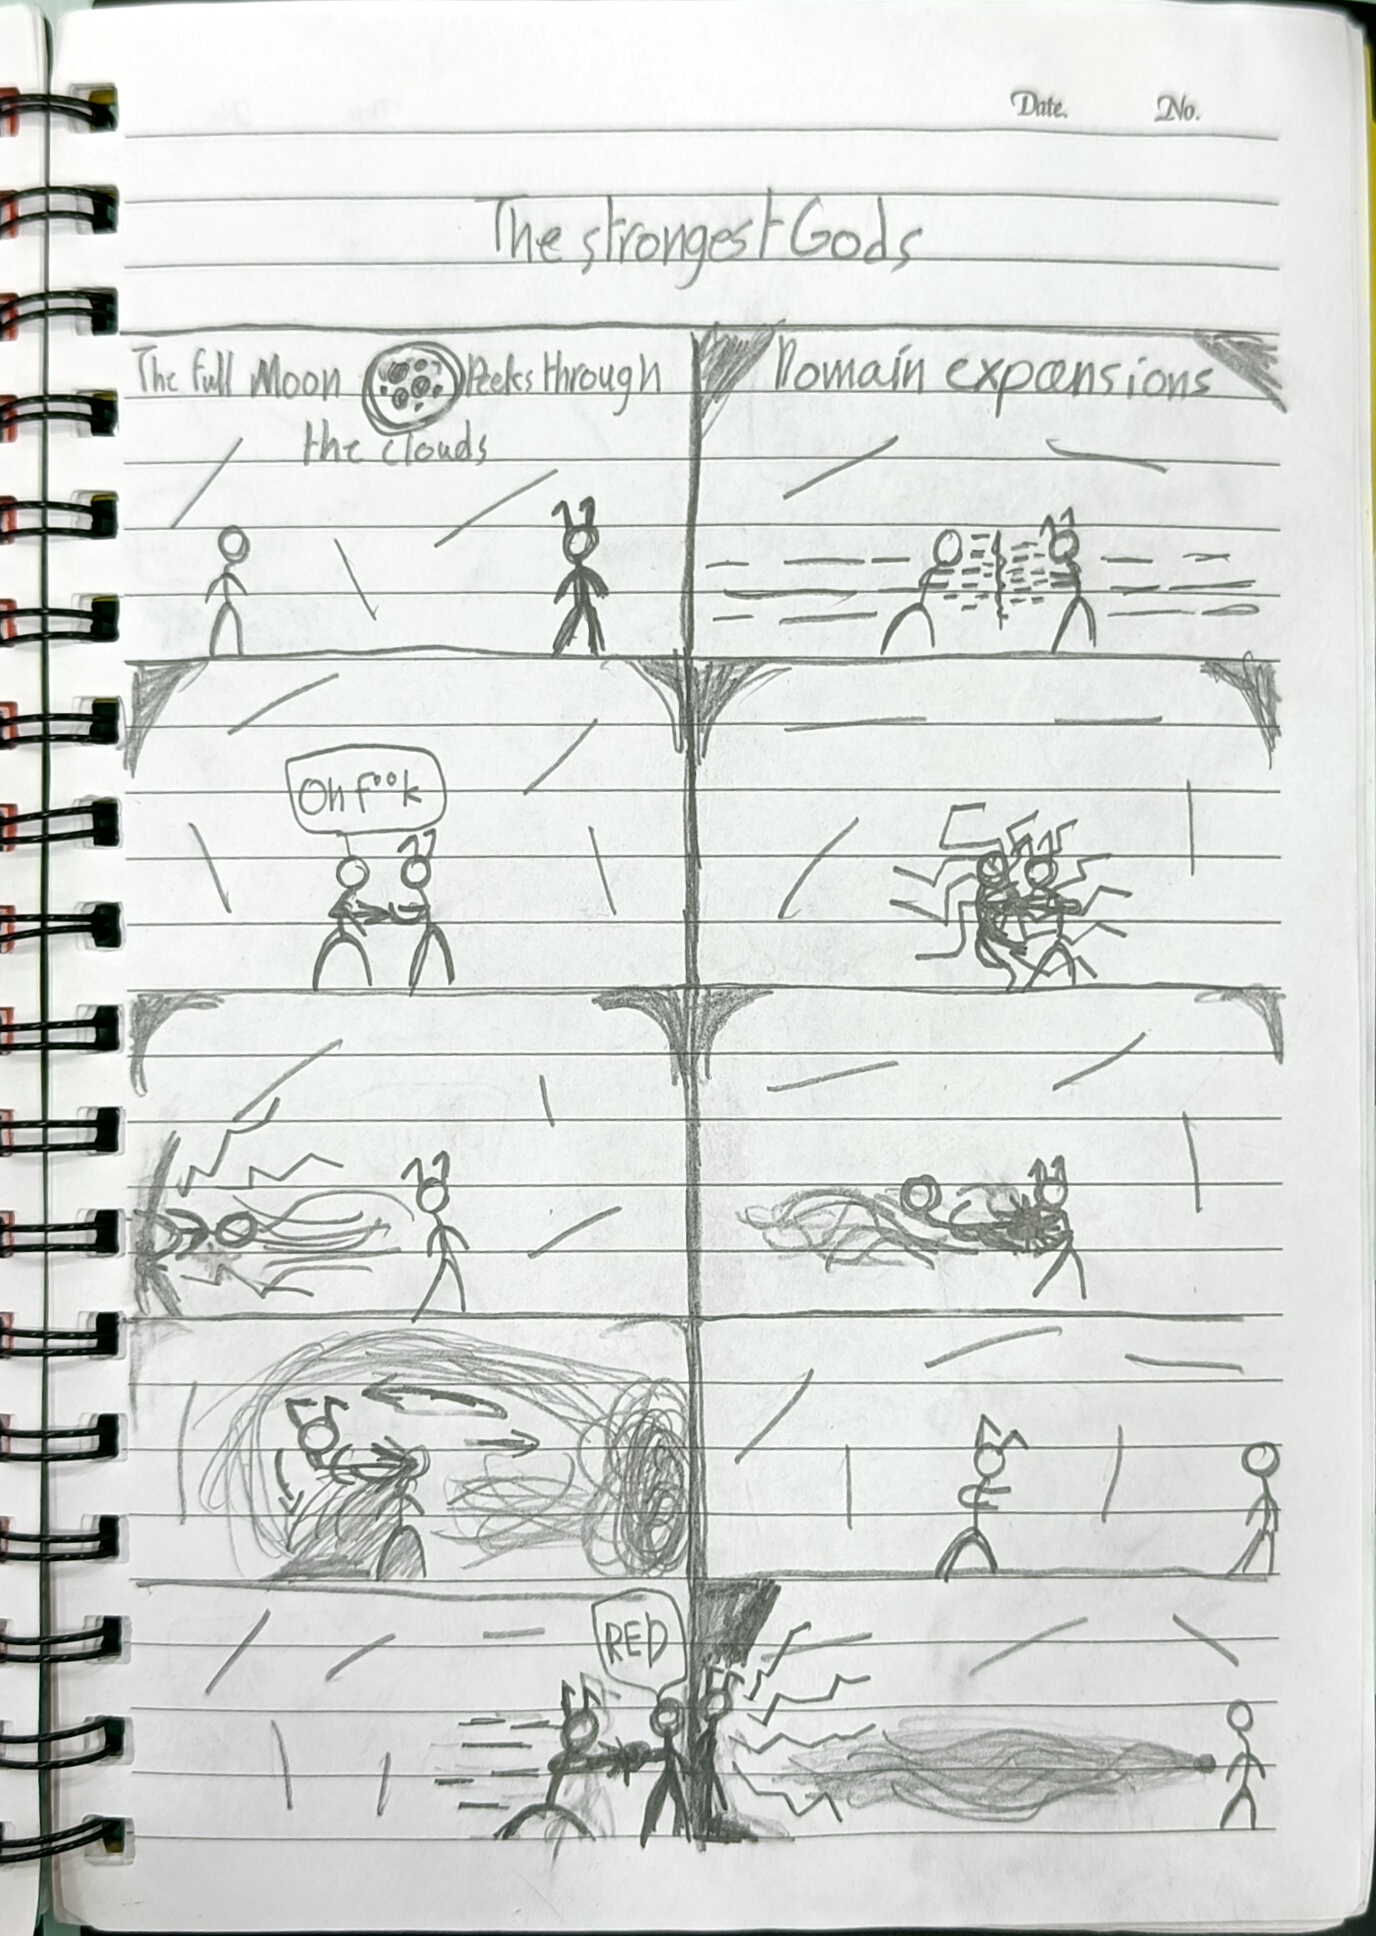 Date. No.
The strongest Gods
The full Moon Peeks through
the clouds
Domain expansions
Oh f**k
RED